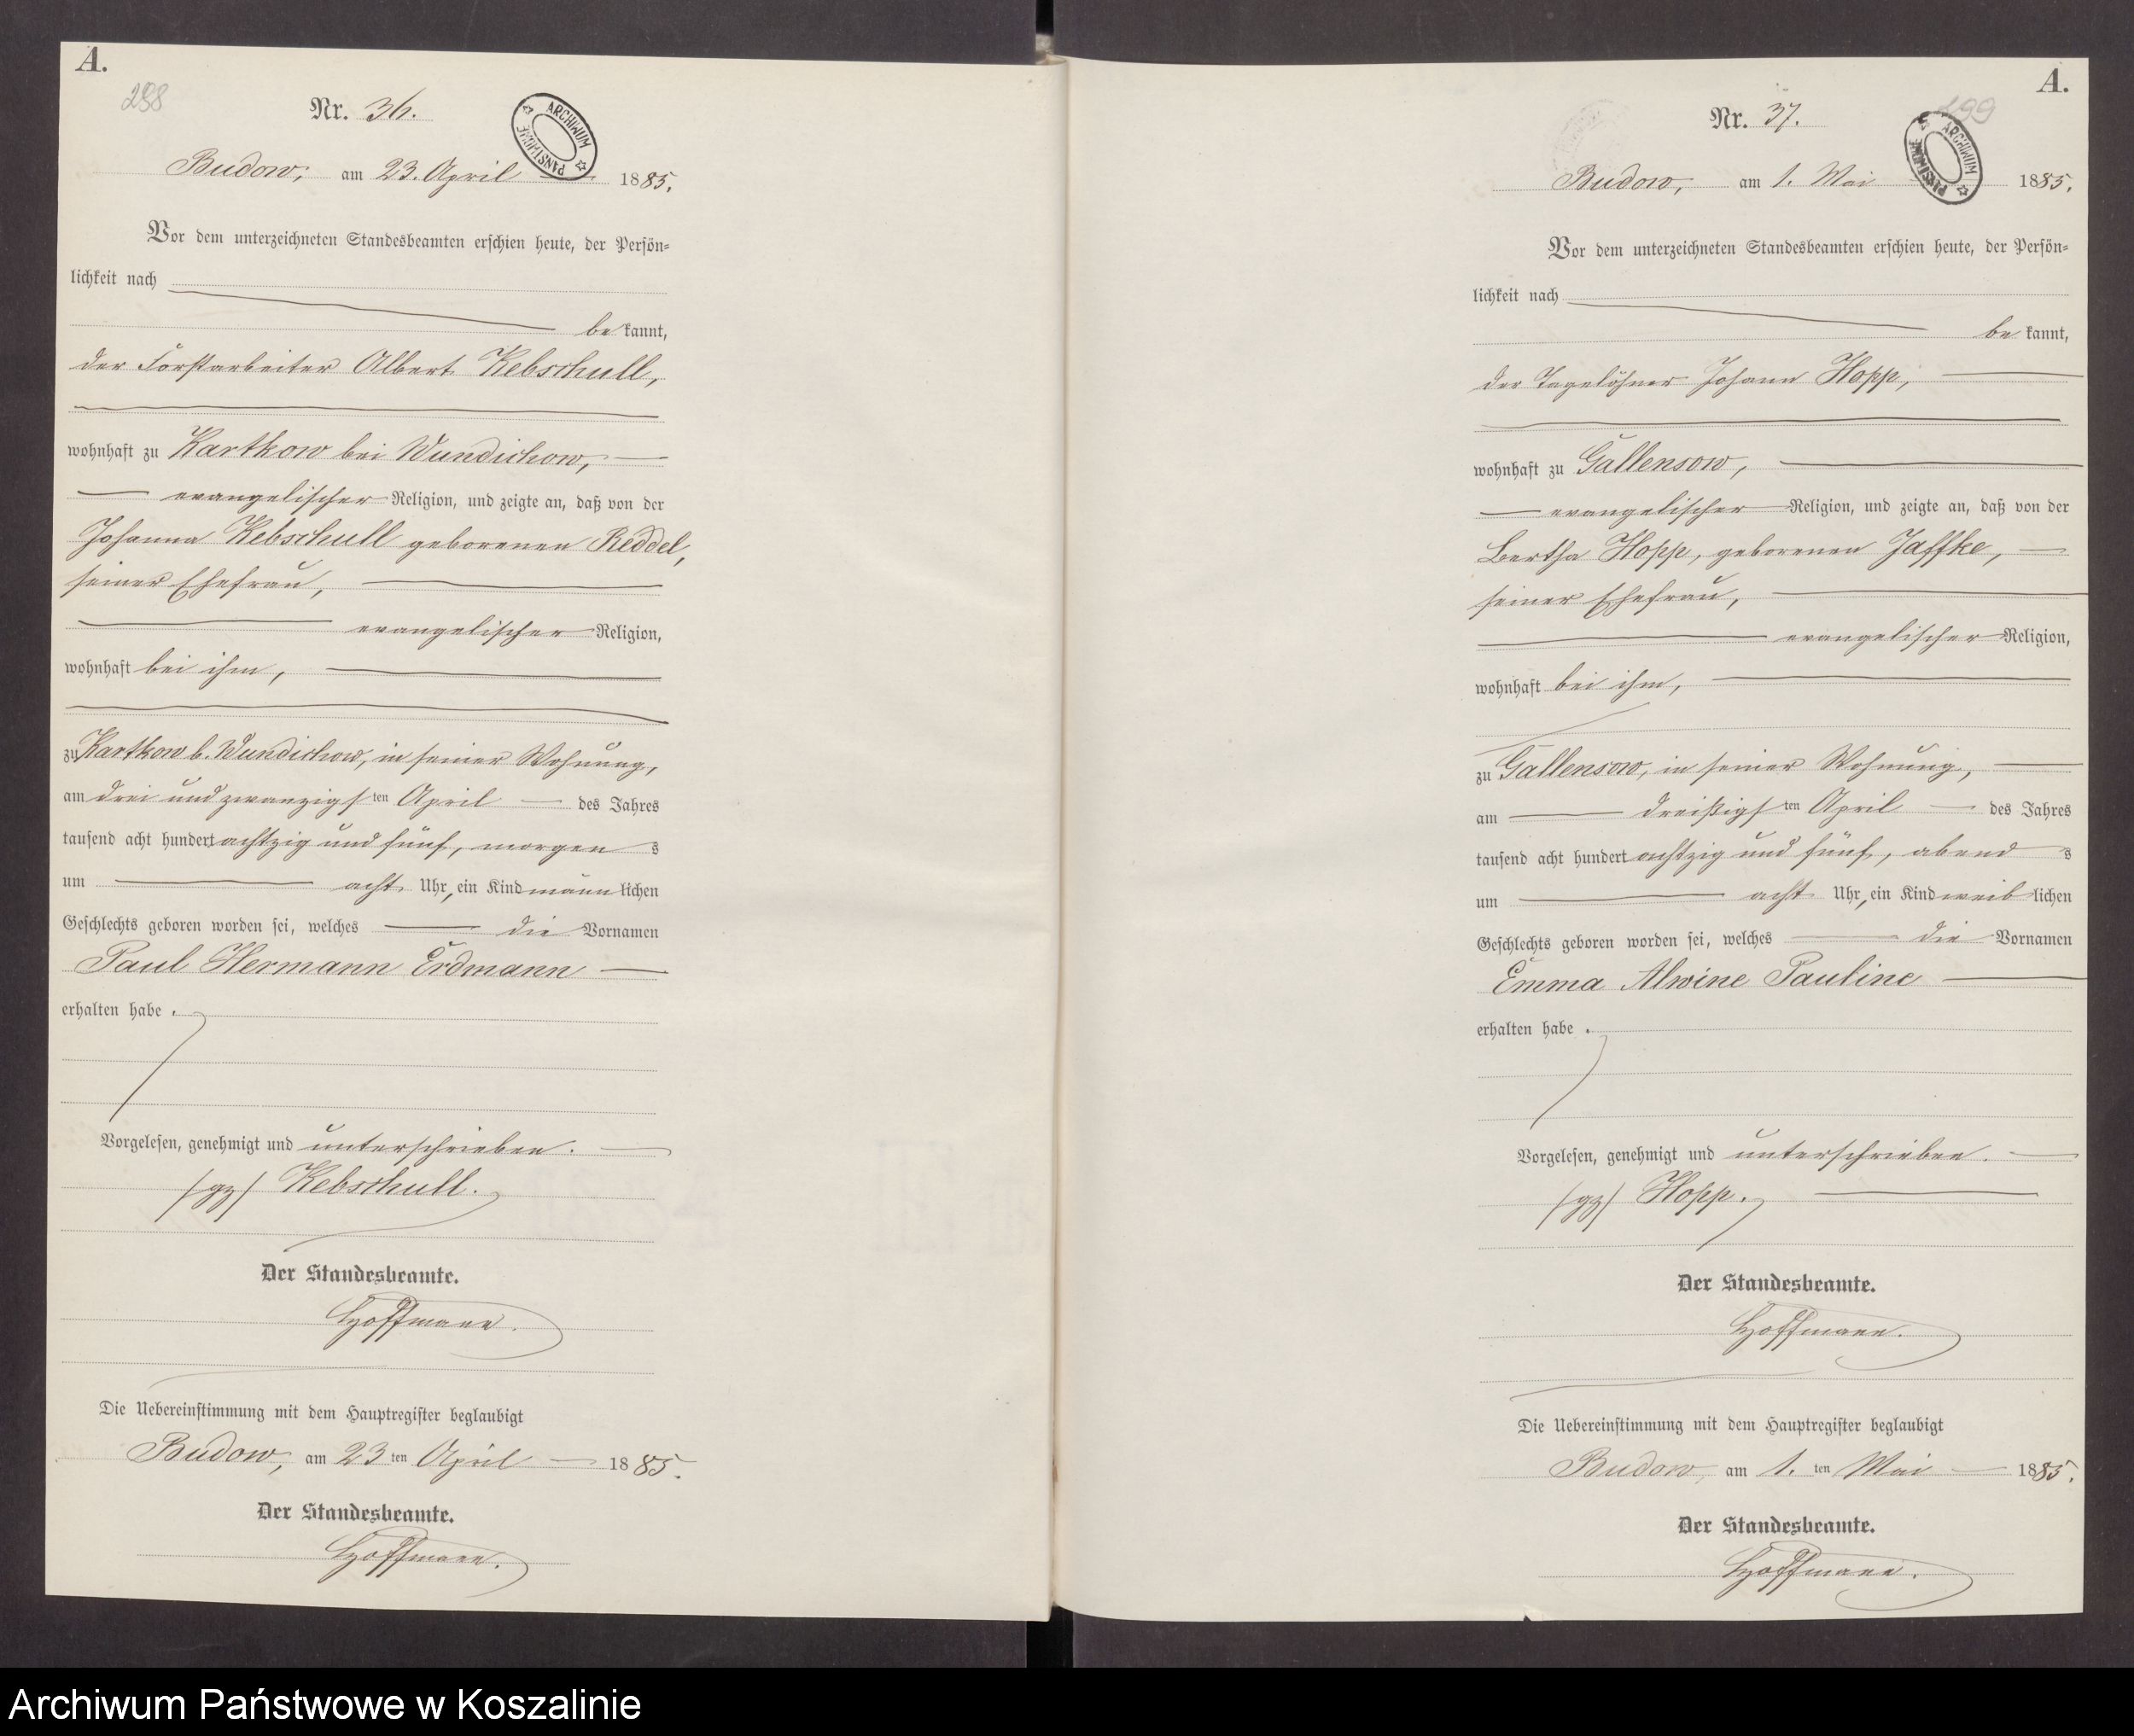 A.
298
Nr. 36.
ARCHIWUM PAŃSTWOWE
Budow, am 23. April 1885.
Vor dem unterzeichneten Standesbeamten erschien heute, der Persön=
lichkeit nach
be kannt,
der Forstarbeiter Albert Kebschull,
wohnhaft zu Kartkow bei Wundichow,
evangelischer Religion, und zeigte an, daß von der
Johanna Kebschull geborenen Reddel,
seiner Ehefrau,
evangelischer Religion,
wohnhaft bei ihm,
zu Kartkow b. Wundichow, in seiner Wohnung,
am drei und zwanzigsten April des Jahres
tausend acht hundert achtzig und fünf, morgens
um acht Uhr, ein Kind männlichen
Geschlechts geboren worden sei, welches die Vornamen
Paul Hermann Erdmann
erhalten habe.
Vorgelesen, genehmigt und unterschrieben.
/gz/ Kebschull.
Der Standesbeamte.
Hoffmann.
Die Uebereinstimmung mit dem Hauptregister beglaubigt
Budow, am 23ten April 1885.
Der Standesbeamte.
Hoffmann.
A.
Nr. 37.
299
ARCHIWUM PAŃSTWOWE
Budow, am 1. Mai 1885.
Vor dem unterzeichneten Standesbeamten erschien heute, der Persön=
lichkeit nach
be kannt,
der Tagelöhner Johann Hopp,
wohnhaft zu Gallensow,
evangelischer Religion, und zeigte an, daß von der
Bertha Hopp, geborenen Jaffke,
seiner Ehefrau,
evangelischer Religion,
wohnhaft bei ihm,
zu Gallensow, in seiner Wohnung,
am dreißigsten April des Jahres
tausend acht hundert achtzig und fünf, abends
um acht Uhr, ein Kind weiblichen
Geschlechts geboren worden sei, welches die Vornamen
Emma Alwine Pauline
erhalten habe.
Vorgelesen, genehmigt und unterschrieben.
/gz/ Hopp.
Der Standesbeamte.
Hoffmann.
Die Uebereinstimmung mit dem Hauptregister beglaubigt
Budow, am 1.ten Mai 1885.
Der Standesbeamte.
Hoffmann.
Archiwum Państwowe w Koszalinie